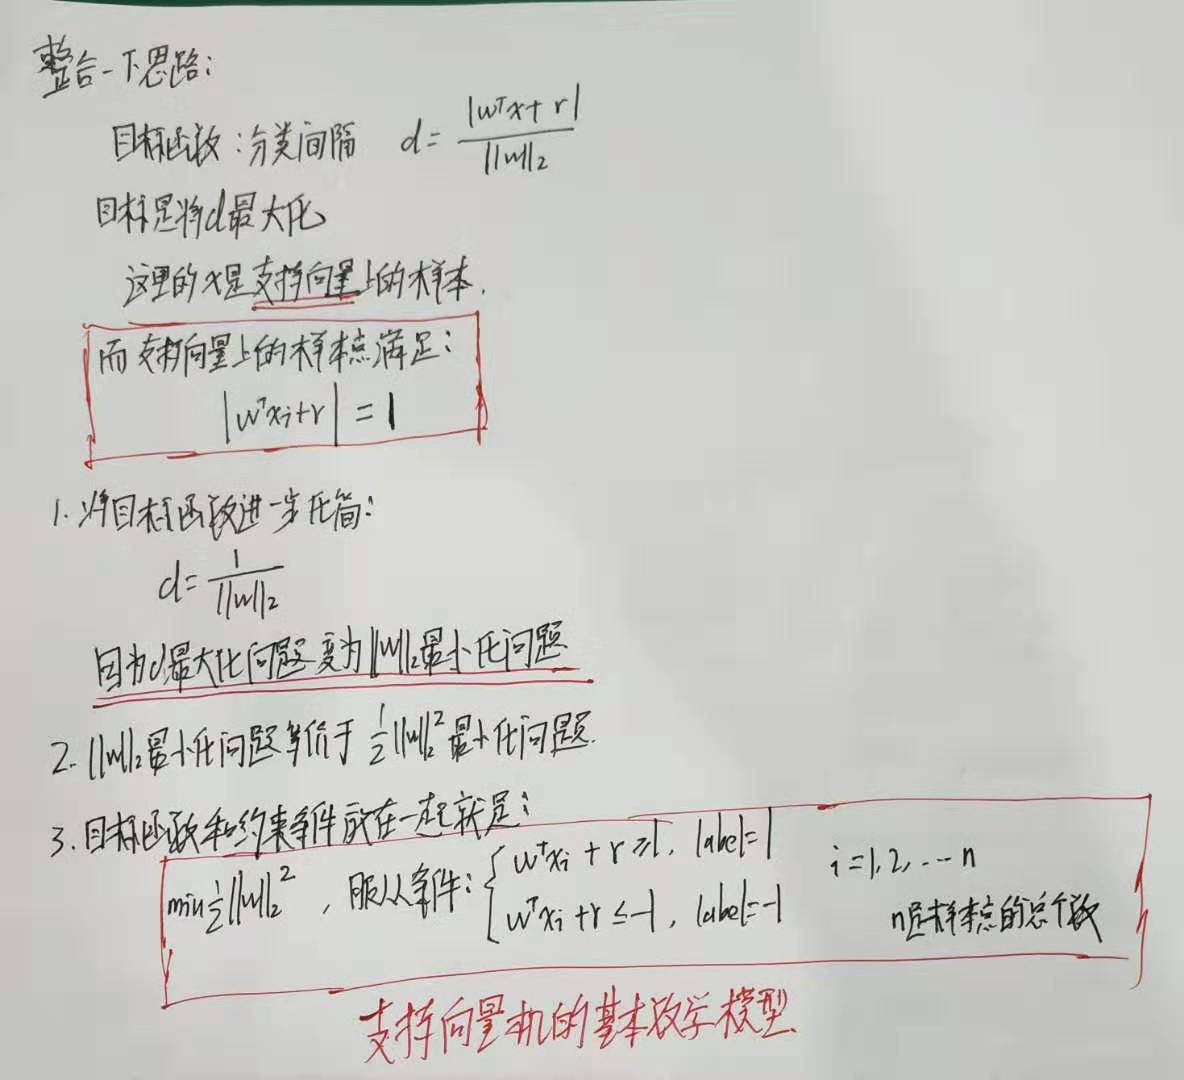 整合一下思路:
目标函数:分类间隔 d= |wᵀx+r| / ||w||₂
目标是将d最大化
这里的x是支持向量上的样本.
而支持向量上的样本点满足:
|wᵀxᵢ+r| = 1
1. 将目标函数进一步化简:
d= 1 / ||w||₂
因为d最大化问题变为||w||₂最小化问题
2. ||w||₂最小化问题等价于 ½||w||₂² 最小化问题.
3. 目标函数和约束条件放在一起就是:
min ½||w||₂² , 服从条件: { wᵀxᵢ + r ≥ 1, label=1 i=1,2,...n
wᵀxᵢ + r ≤ -1, label=-1 n是样本点的总个数
支持向量机的基本数学模型